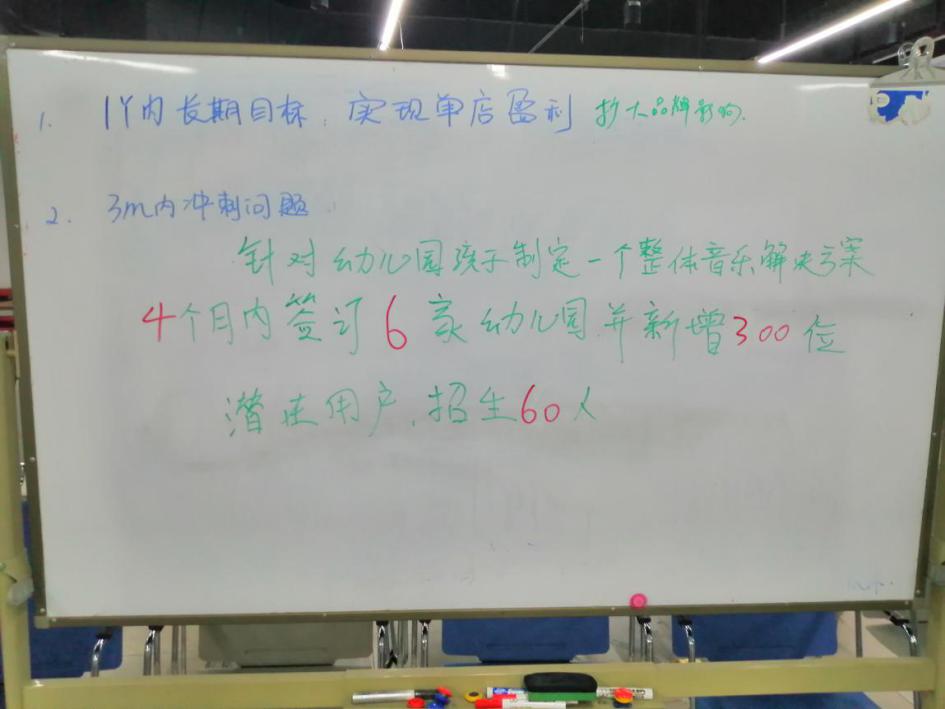 1. 1Y内长期目标:实现单店盈利 扩大品牌影响.
2. 3m内冲刺问题
针对幼儿园孩子制定一个整体音乐解决方案
4个月内签订6家幼儿园并新增300位
潜在用户,招生60人